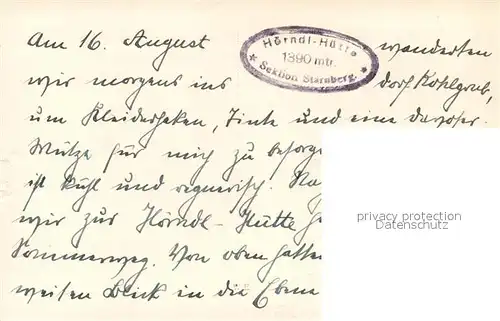 Am 16. August wanderten
Hörndl-Hütte
1390 mtr.
* Sektion Starnberg. *
wir morgens ins dorf Kohlgrub,
um Kleiderhaken, Tinte und eine davoser
Mütze für mich zu besorge
ist kühl und regnerisch. Na
wir zur Hörndl-Hütte
Sommerweg. Von oben hatte
weiten Blick in die Ebene
privacy protection
Datenschutz